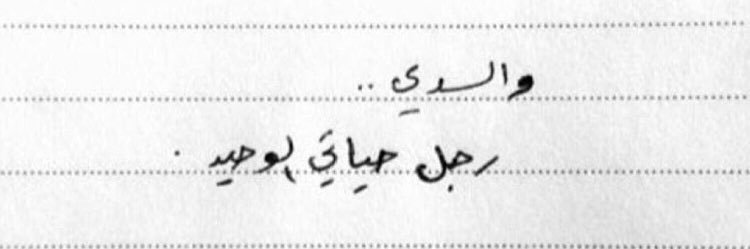 والدي ..
رجل حياتي الوحيد .